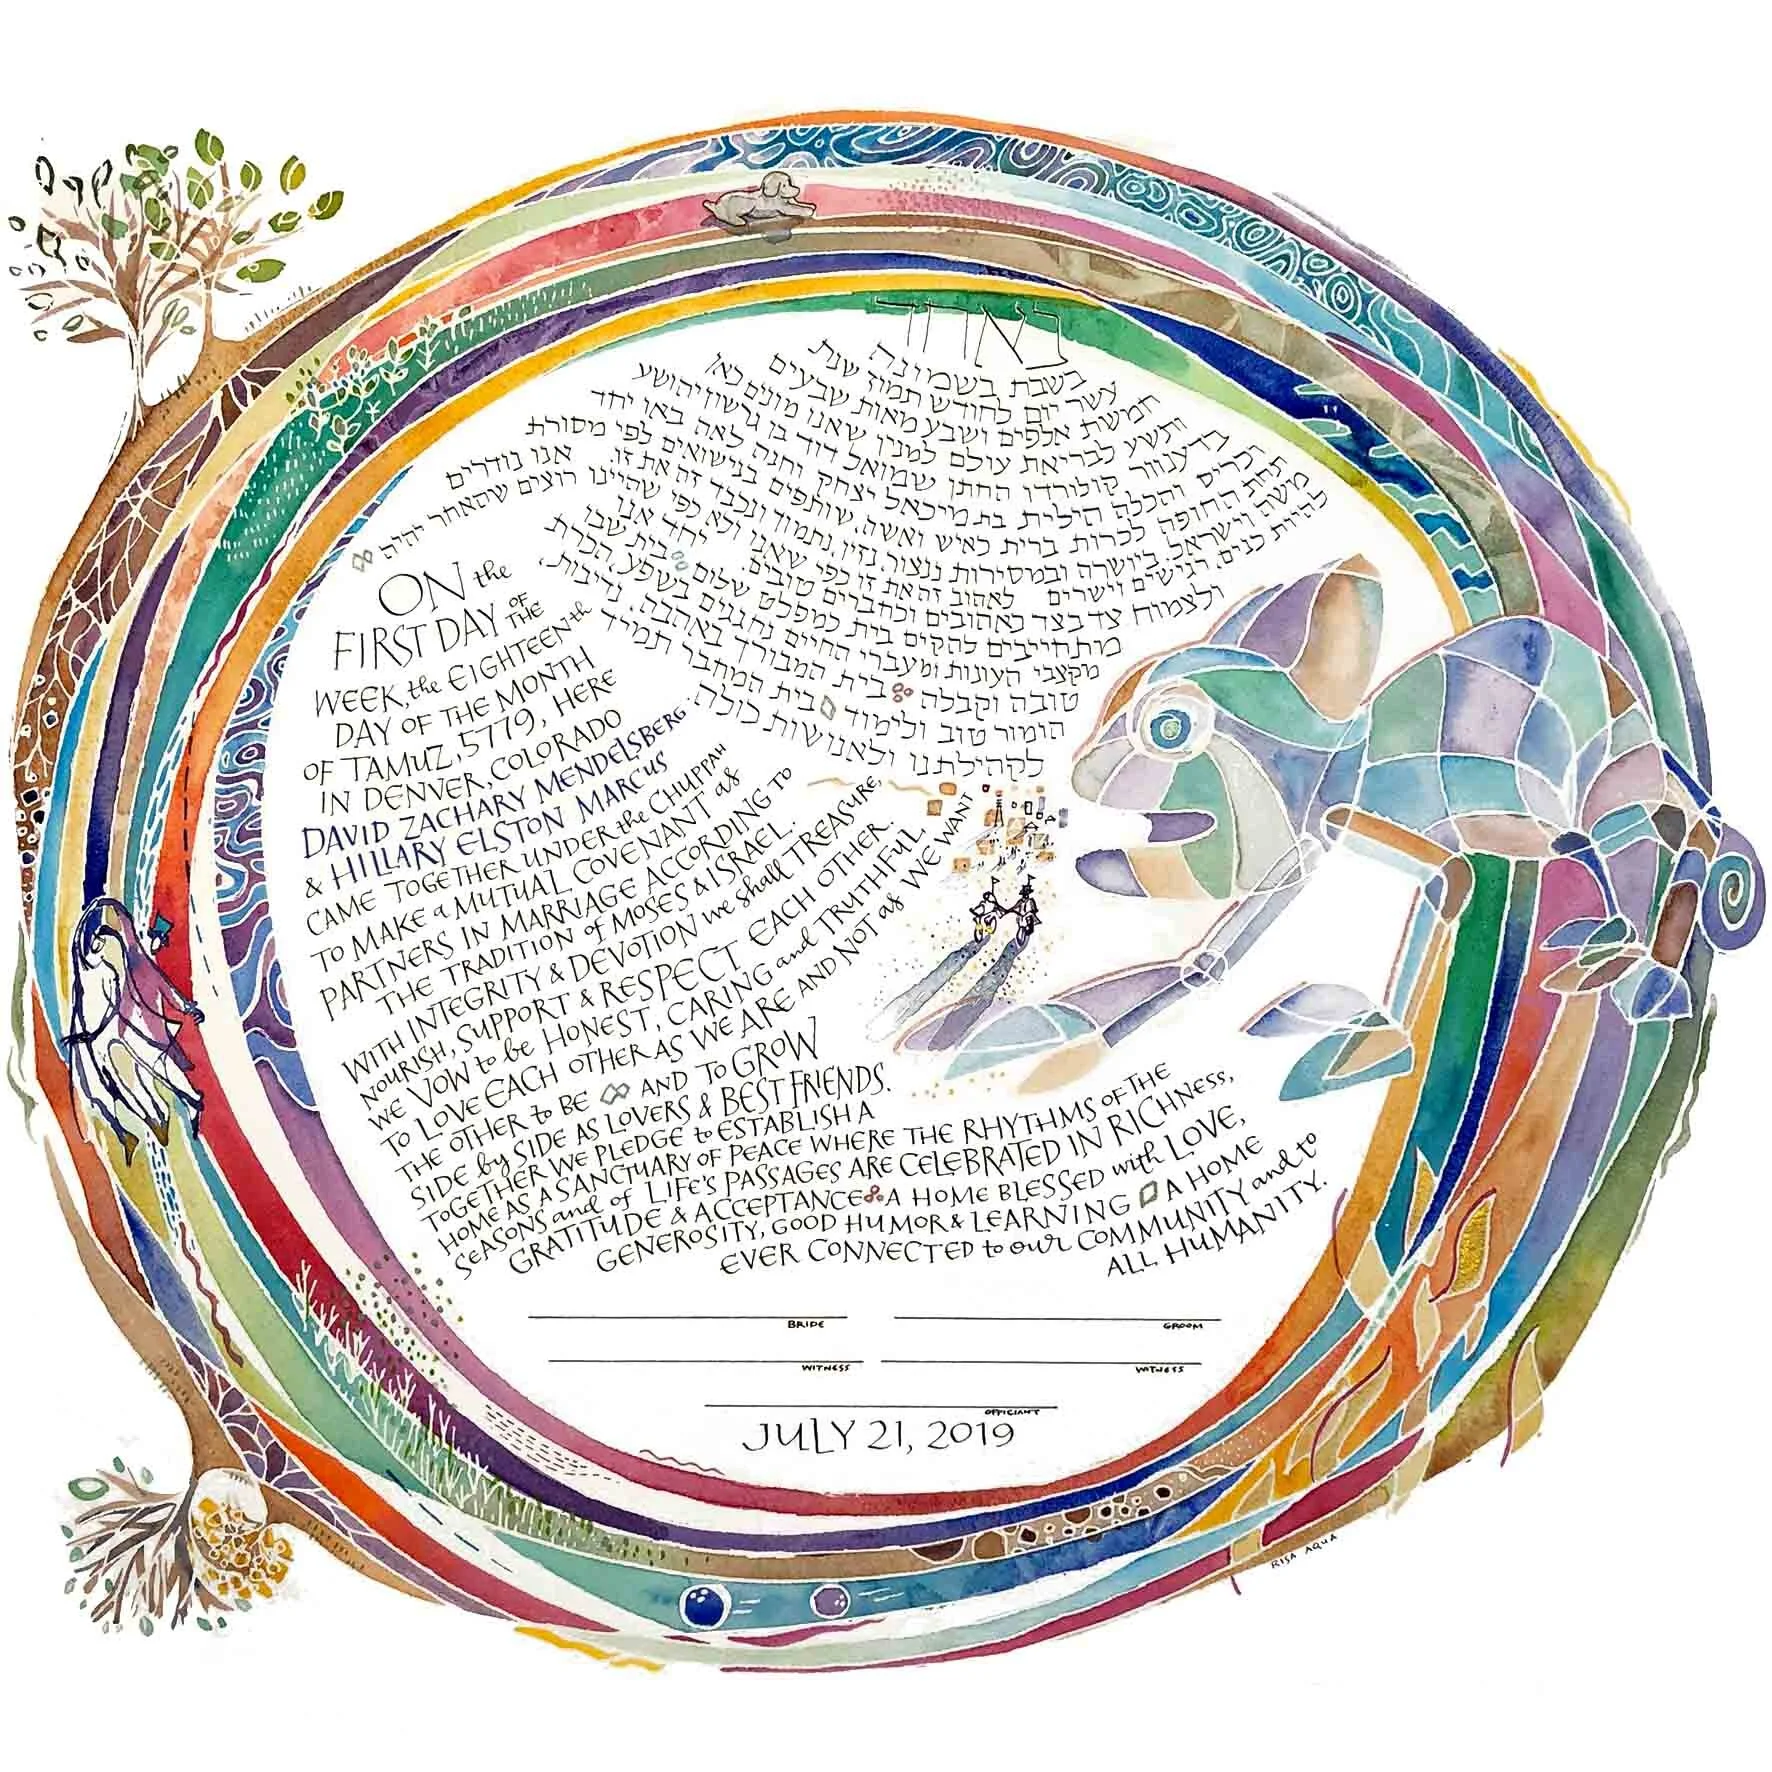 באחד
בשבת בשמונה
עשר יום לחודש תמוז שנת
חמשת אלפים ושבע מאות שבעים
ותשע לבריאת עולם למנין שאנו מונים כאן
קולורדו החתן שמואל דוד בן גרשון יהושע
והכלה הילית בת מיכאל יצחק וחנה לאה באו יחד
תחת החופה לכרות ברית כאיש ואשה, שותפים בנישואים לפי מסורת
משה וישראל. ביושרה ובמסירות ננצור, נזין, נתמוך ונכבד זה את זו. אנו נודרים
להיות כנים, רגישים וישרים לאהוב זה את זו כפי שאנו ולא כפי שהיינו רוצים שהאחר יהיה
ולצמוח צד בצד כאהובים וכחברים טובים. יחד אנו
מתחייבים להקים בית כמפלט שלום בית שבו
מקצבי העונות ומעברי החיים נחגגים בשפע, הכרת
טובה וקבלה בית המבורך באהבה, נדיבות,
הומור טוב ולימוד בית המחבר תמיד
לקהילתנו ולאנושות כולה.
ON the
FIRST DAY OF THE
WEEK, the EIGHTEENth
DAY OF THE MONTH
OF TAMUZ, 5779, HERE
IN DENVER, COLORADO
DAVID ZACHARY MENDELSBERG
& HILLARY ELSTON MARCUS
CAME TOGETHER UNDER the CHUPPAH
TO MAKE a MUTUAL COVENANT as
PARTNERS IN MARRIAGE ACCORDING TO
THE TRADITION of MOSES & ISRAEL.
WITH INTEGRITY & DEVOTION we shall TREASURE,
NOURISH, SUPPORT & RESPECT EACH OTHER.
WE VOW to be HONEST, CARING and TRUTHFUL,
TO LOVE EACH OTHER AS WE ARE AND NOT as WE WANT
THE OTHER to BE AND TO GROW
SIDE by SIDE AS LOVERS & BEST FRIENDS.
TOGETHER WE PLEDGE to ESTABLISH A
HOME AS A SANCTUARY OF PEACE WHERE THE RHYTHMS OF THE
SEASONS and of LIFE'S PASSAGES ARE CELEBRATED IN RICHNESS,
GRATITUDE & ACCEPTANCE A HOME BLESSED with LOVE,
GENEROSITY, GOOD HUMOR & LEARNING A HOME
EVER CONNECTED to our COMMUNITY and to
ALL HUMANITY.
BRIDE
GROOM
WITNESS
WITNESS
OFFICIANT
JULY 21, 2019
RISA AQUA